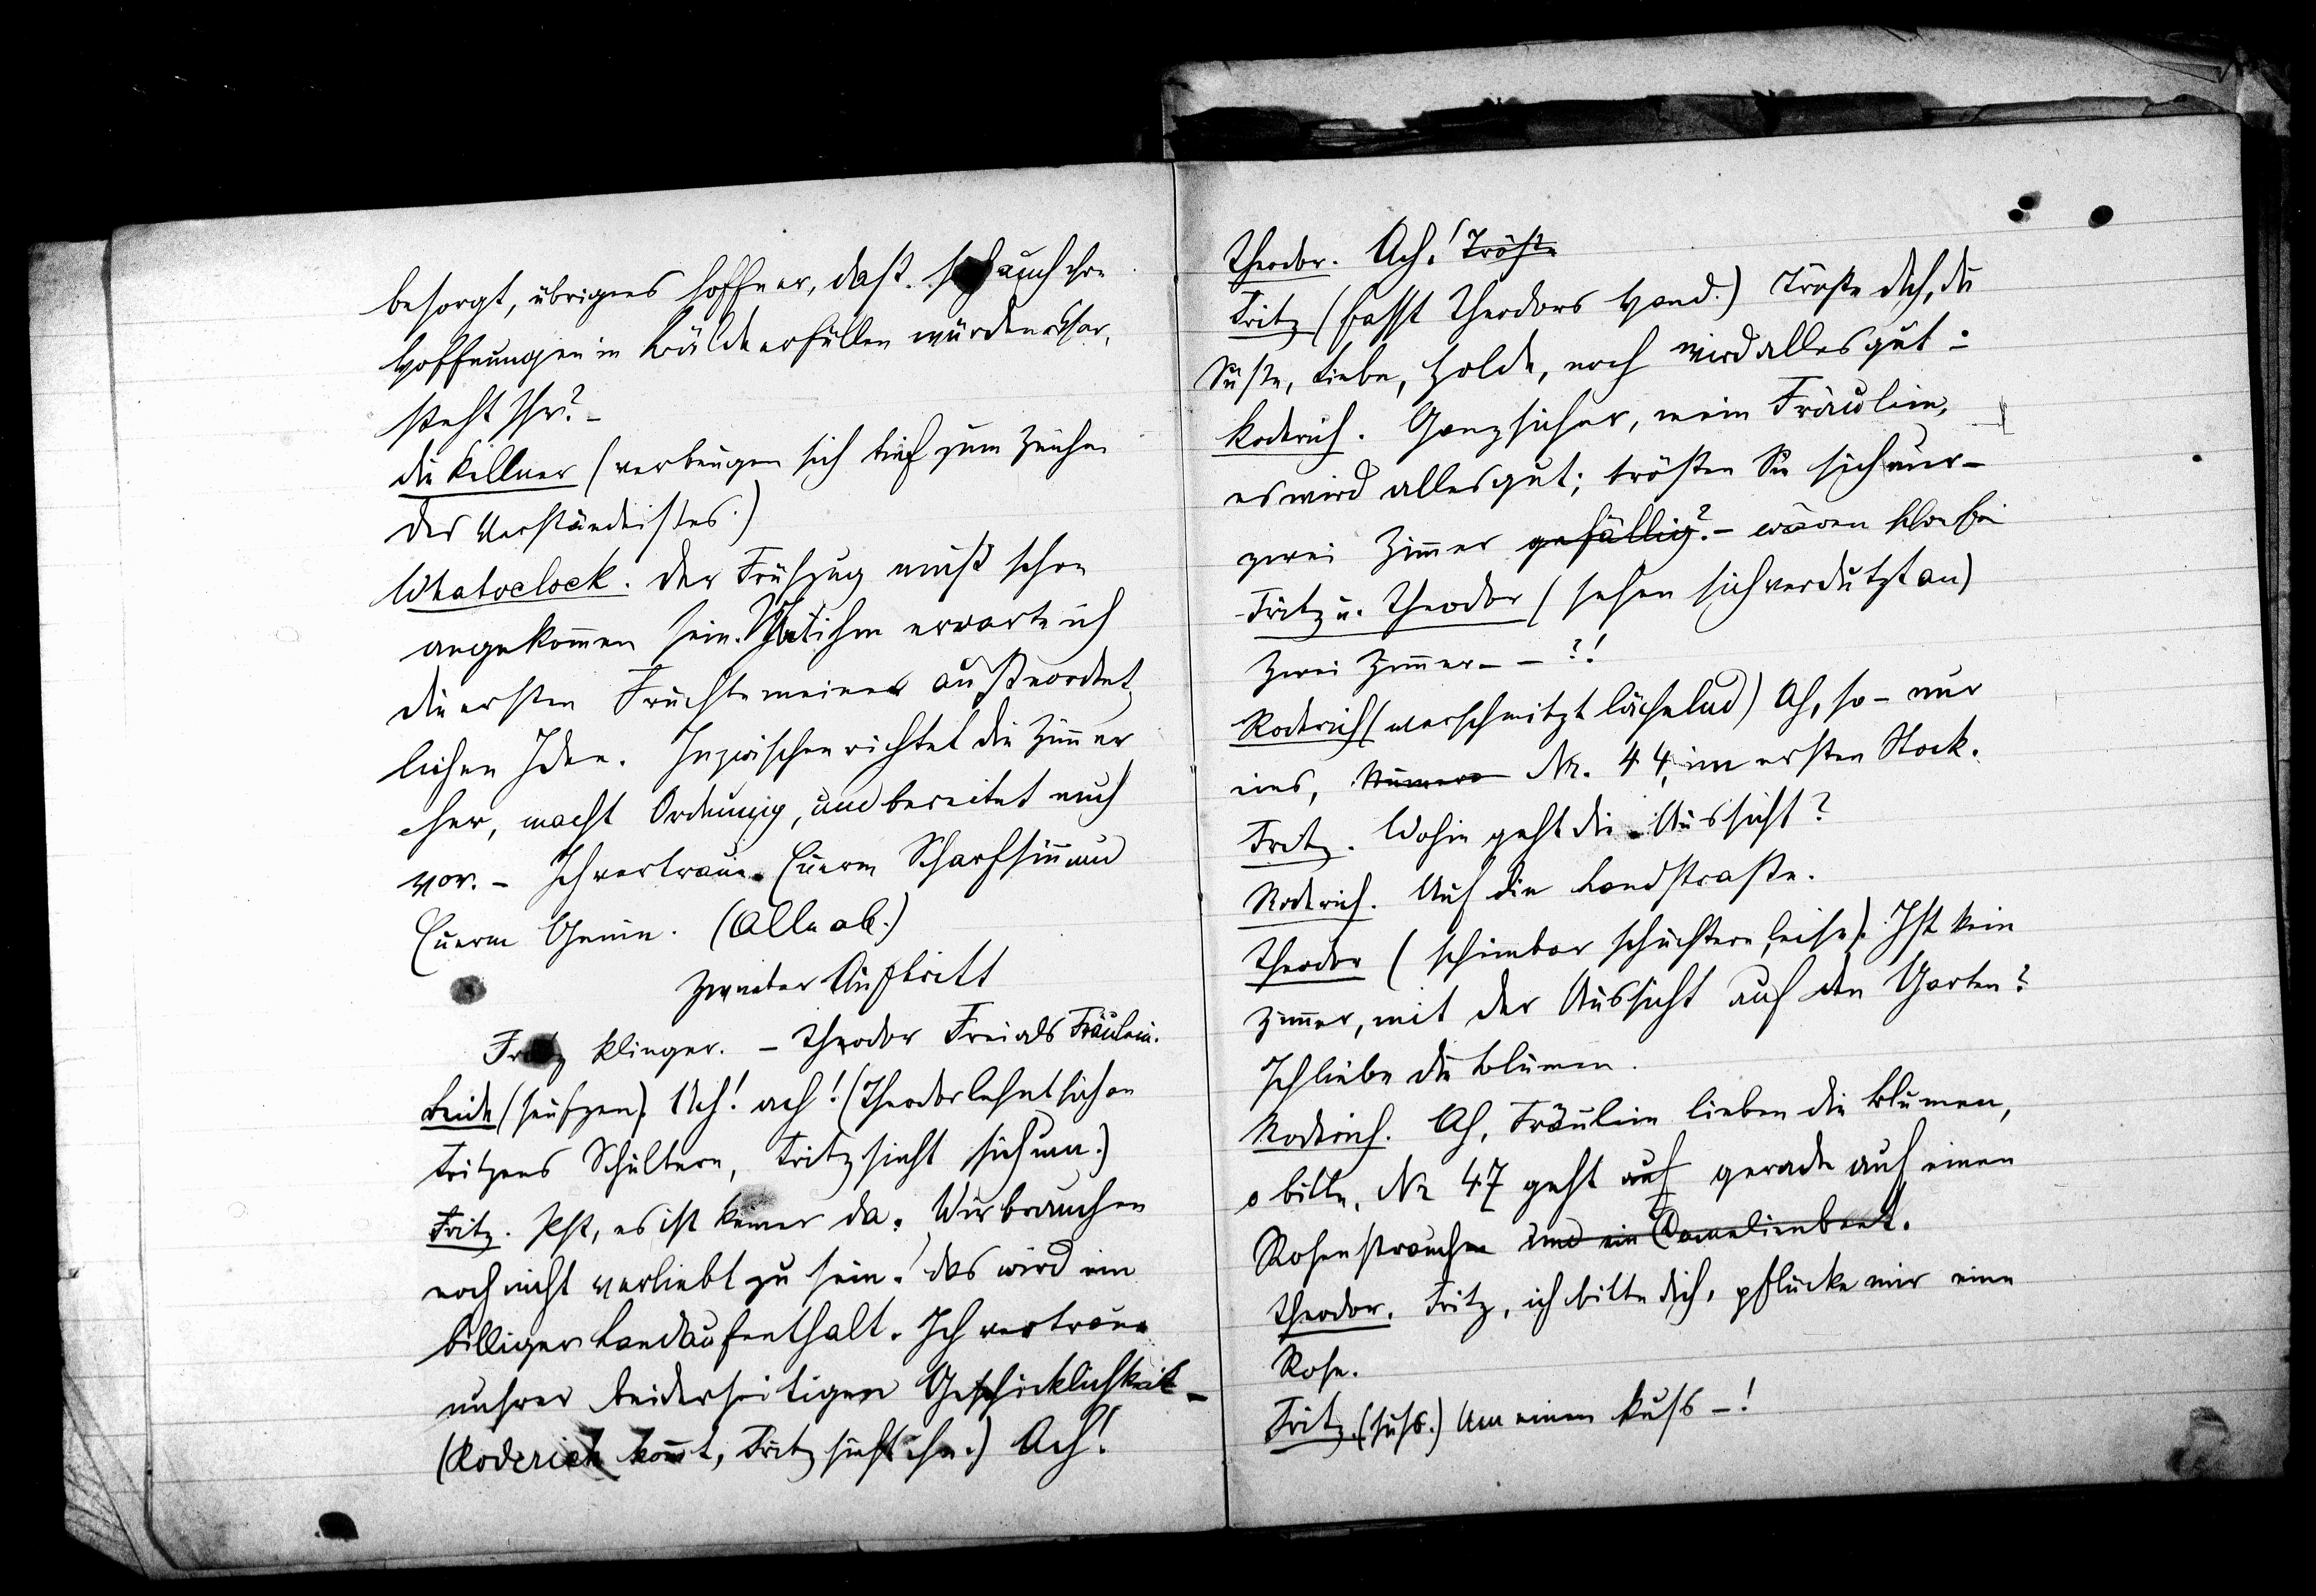 besorgt, übrigens hoffe er, daß sich auch ihre
Hoffnungen in Bälde erfüllen würden. Ver-
steht Ihr? –
die Kellner (verbeugen sich tief zum Zeichen
des Verständnisses.)
Whatoclock. Der Frühzug muß schon
angekom̄en sein. Mit ihm erwarte ich
die ersten Früchte meiner außerordent-
lichen Idee. Inzwischen richtet die Zim̄er
her, macht Ordnung, und bereitet euch
vor. – Ich vertraue Euerm Scharfsin̄ und
Euerm Genie. (Alle ab.)
Zweiter Auftritt
Fritz Klinger. – Theodor Frei als Fräulein.
Beide (seufzen). Ach! ach! (Theodor lehnt sich an
Fritzens Schultern, Fritz sieht sich um.)
Fritz. Pst, es ist keiner da. Wir brauchen
noch nicht verliebt zu sein! das wird ein
billiger Landaufenthalt. Ich vertraue
unsrer beiderseitigen Geschicklichkeit –
(Roderich kom̄t, Fritz sieht ihn.) Ach!
Theodor. Ach! Tröste
Fritz (fasst Theodors Hand.) Tröste dich, du
Süße, Liebe, Holde, noch wird alles gut –
Roderich. Ganz sicher, mein Fräulein,
es wird alles gut; trösten Sie sich nur –
zwei Zim̄er gefällig? – wären
Fritz u. Theodor (sehen sich verdutzt an)
Zwei Zim̄er – – ?!
Roderich (verschmitzt lächelnd) Ah, so – nur
eins, Numero Nr. 44, im ersten Stock.
Fritz. Wohin geht die Aussicht?
Roderich. Auf die Landstraße.
Theodor (scheinbar schüchtern, leise). Ist kein
Zim̄er, mit der Aussicht auf den Garten?
Ich liebe die Blumen.
Roderich. Ah, Fräulein lieben die Blumen,
o bitte, Nr 47 geht auf gerade auf einen
Rosenstrauch und ein Camelienbeet.
Theodor. Fritz, ich bitte dich, pflücke mir eine
Rose.
Fritz (süß.) Um einen Kuß – !